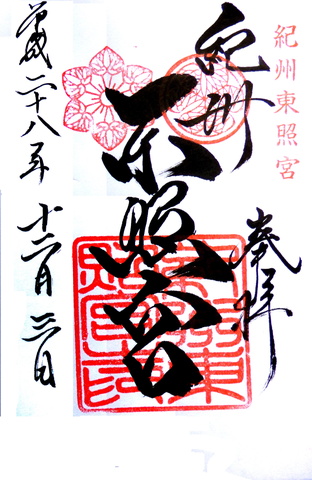 紀州東照宮
奉拝
紀州
東照宮
平成二十八年 十二月三日